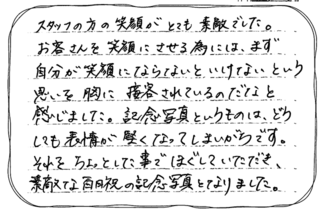 スタッフの方の笑顔がとても素敵でした。
お客さんを笑顔にさせる為には、まず
自分が笑顔にならないといけないという
思いを胸に接客されているのだなと
感じました。記念写真というものは、どう
しても表情が堅くなってしまいがちです。
それをちょっとした事でほぐしていただき、
素敵な百日祝の記念写真となりました。